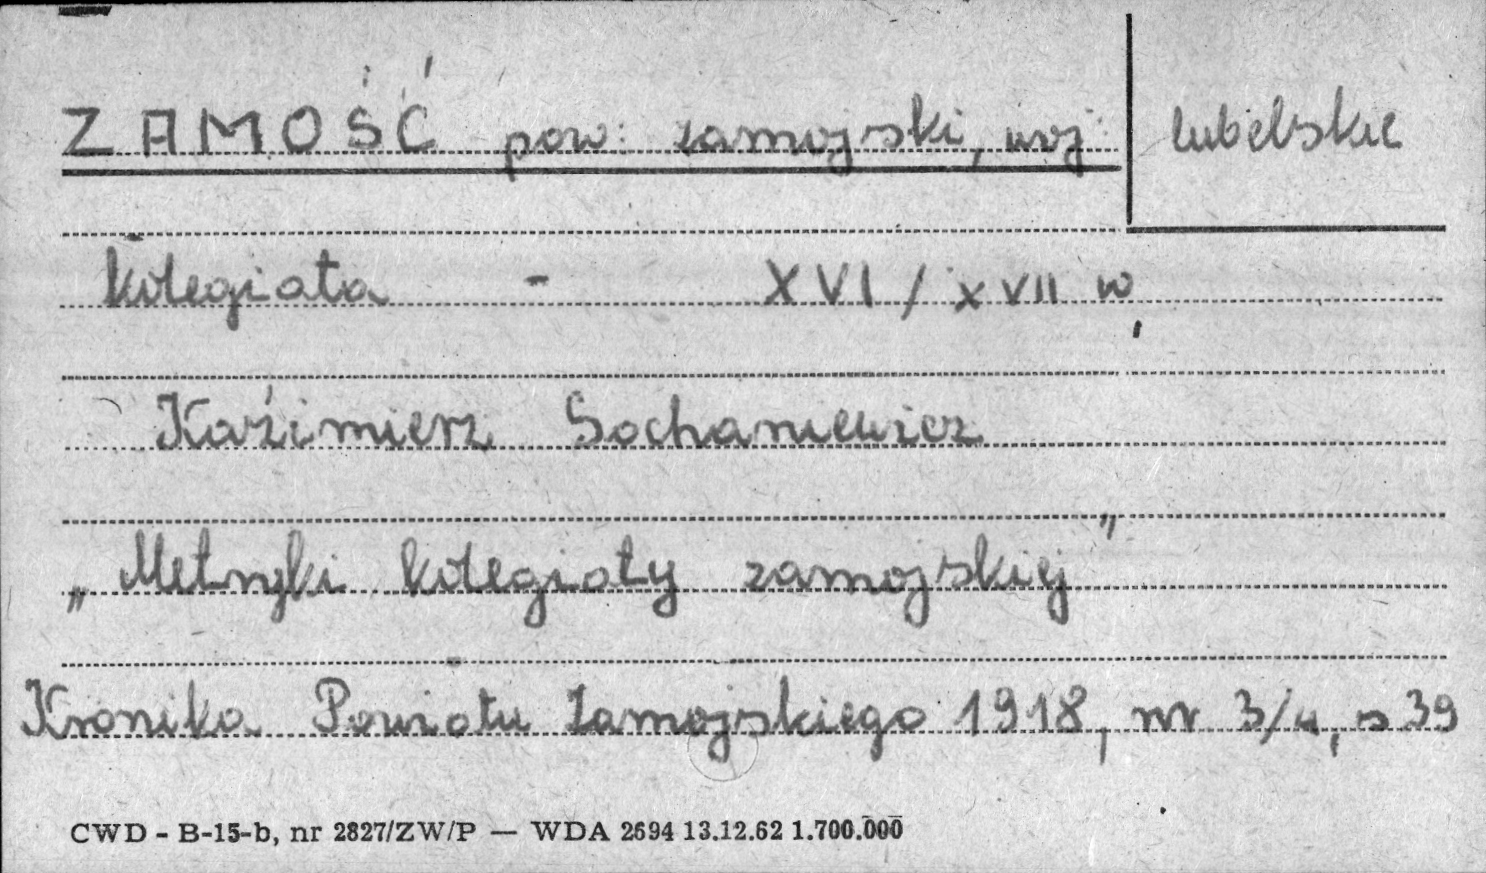 ZAMOŚĆ pow. zamojski, woj. lubelskie
kolegiata - XVI/XVII w.
Kaźimierz Sochaniewicz
„Metryki kolegiaty zamojskiej"
Kronika Powiatu Zamojskiego 1918, nr 3/4, s 39
CWD - B-15-b, nr 2827/ZW/P — WDA 2694 13.12.62 1.700.000